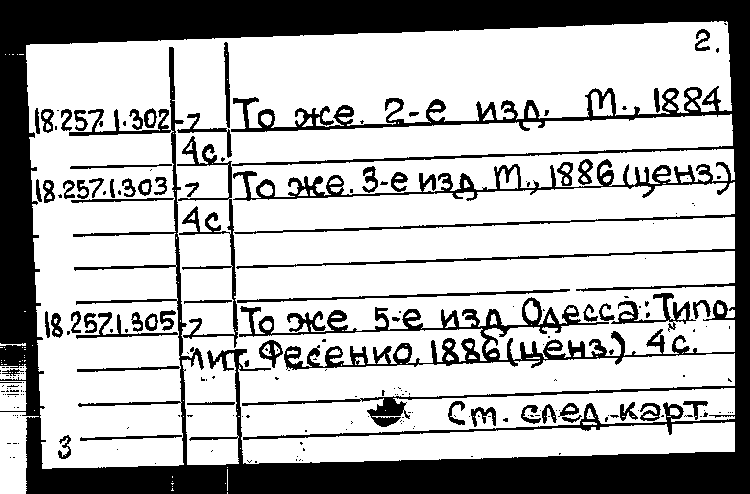 2.
18.257.1.302-7 То же. 2-е изд. М., 1884
4с.
18.257.1.303-7 То же. 3-е изд. М., 1886 (ценз.)
4с.
18.257.1.305-7 То же. 5-е изд. Одесса: Типо-
лит. Фесенко, 1886 (ценз.). 4с.
Ст. след. карт.
3